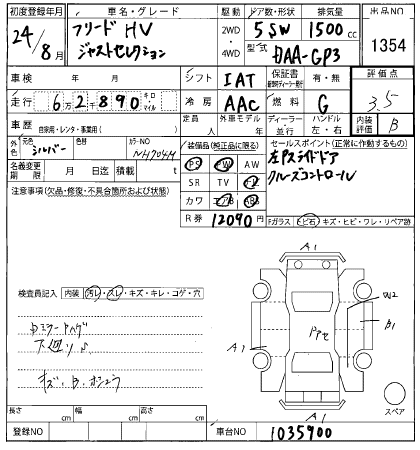 初度登録年月 車名・グレード 駆動 ドア数・形状 排気量 出品NO
24/8月 フリード HV ジャストセレクション 2WD 4WD 5 SW 1500cc 1354
型式 DAA-GP3
車検 年 月 シフト IAT 保証書 有・無 評価点
走行 6万2千890 キロ マイル 冷房 AAC 燃料 G 3.5
車歴 自家用・レンタ・事業用( ) 定員 人 外車モデル 年 ディーラー 並行 ハンドル 左・右 内装評価 B
外色 元色 シルバー 色替 カラーNO NH704M 装備品(純正品に限る) セールスポイント(正常に作動するもの)
PS PW AW 左Pスライドドア
名義変更期限 月 日迄 積載 t SR TV クルーズコントロール
注意事項(欠品・修復・不具合箇所および状態) カワ エアB ABS
R券 12090円 Fガラス ヒビ石・キズ・ヒビ・ワレ・リペア跡
検査員記入 内装 汚レ・スレ・キズ・キレ・コゲ・穴
A1
B1
A1
A1
スペア
長さ cm 幅 cm 高さ cm
登録NO 車台NO 1035900